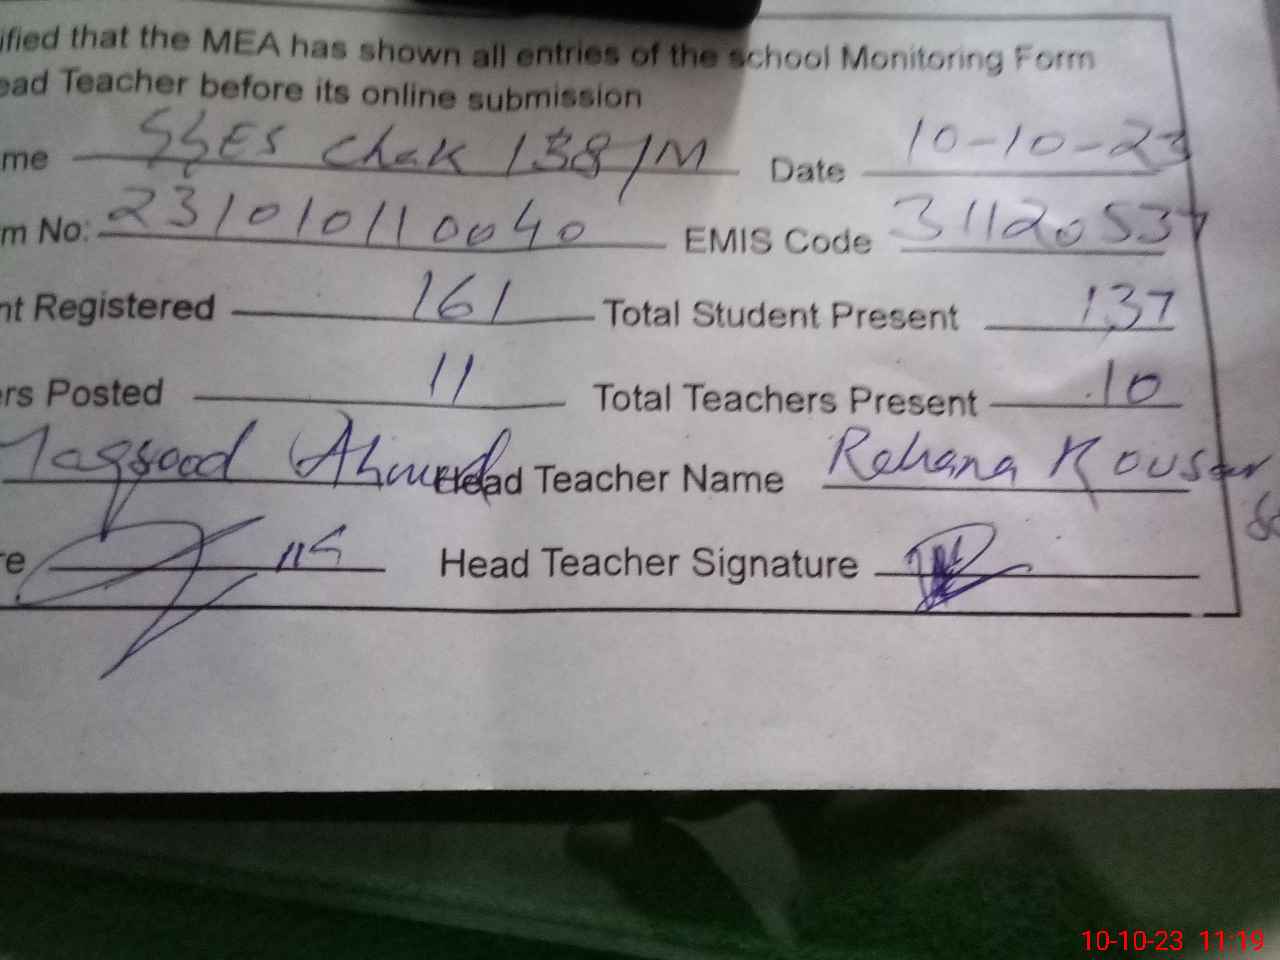 ified that the MEA has shown all entries of the school Monitoring Form
ead Teacher before its online submission
me SSES Chak 138/M Date 10-10-23
m No: 231010110040 EMIS Code 31120537
nt Registered 161 Total Student Present 137
ers Posted 11 Total Teachers Present 10
Maqsood Ahmed Head Teacher Name Rehana Kousar
re Head Teacher Signature
10-10-23 11:19